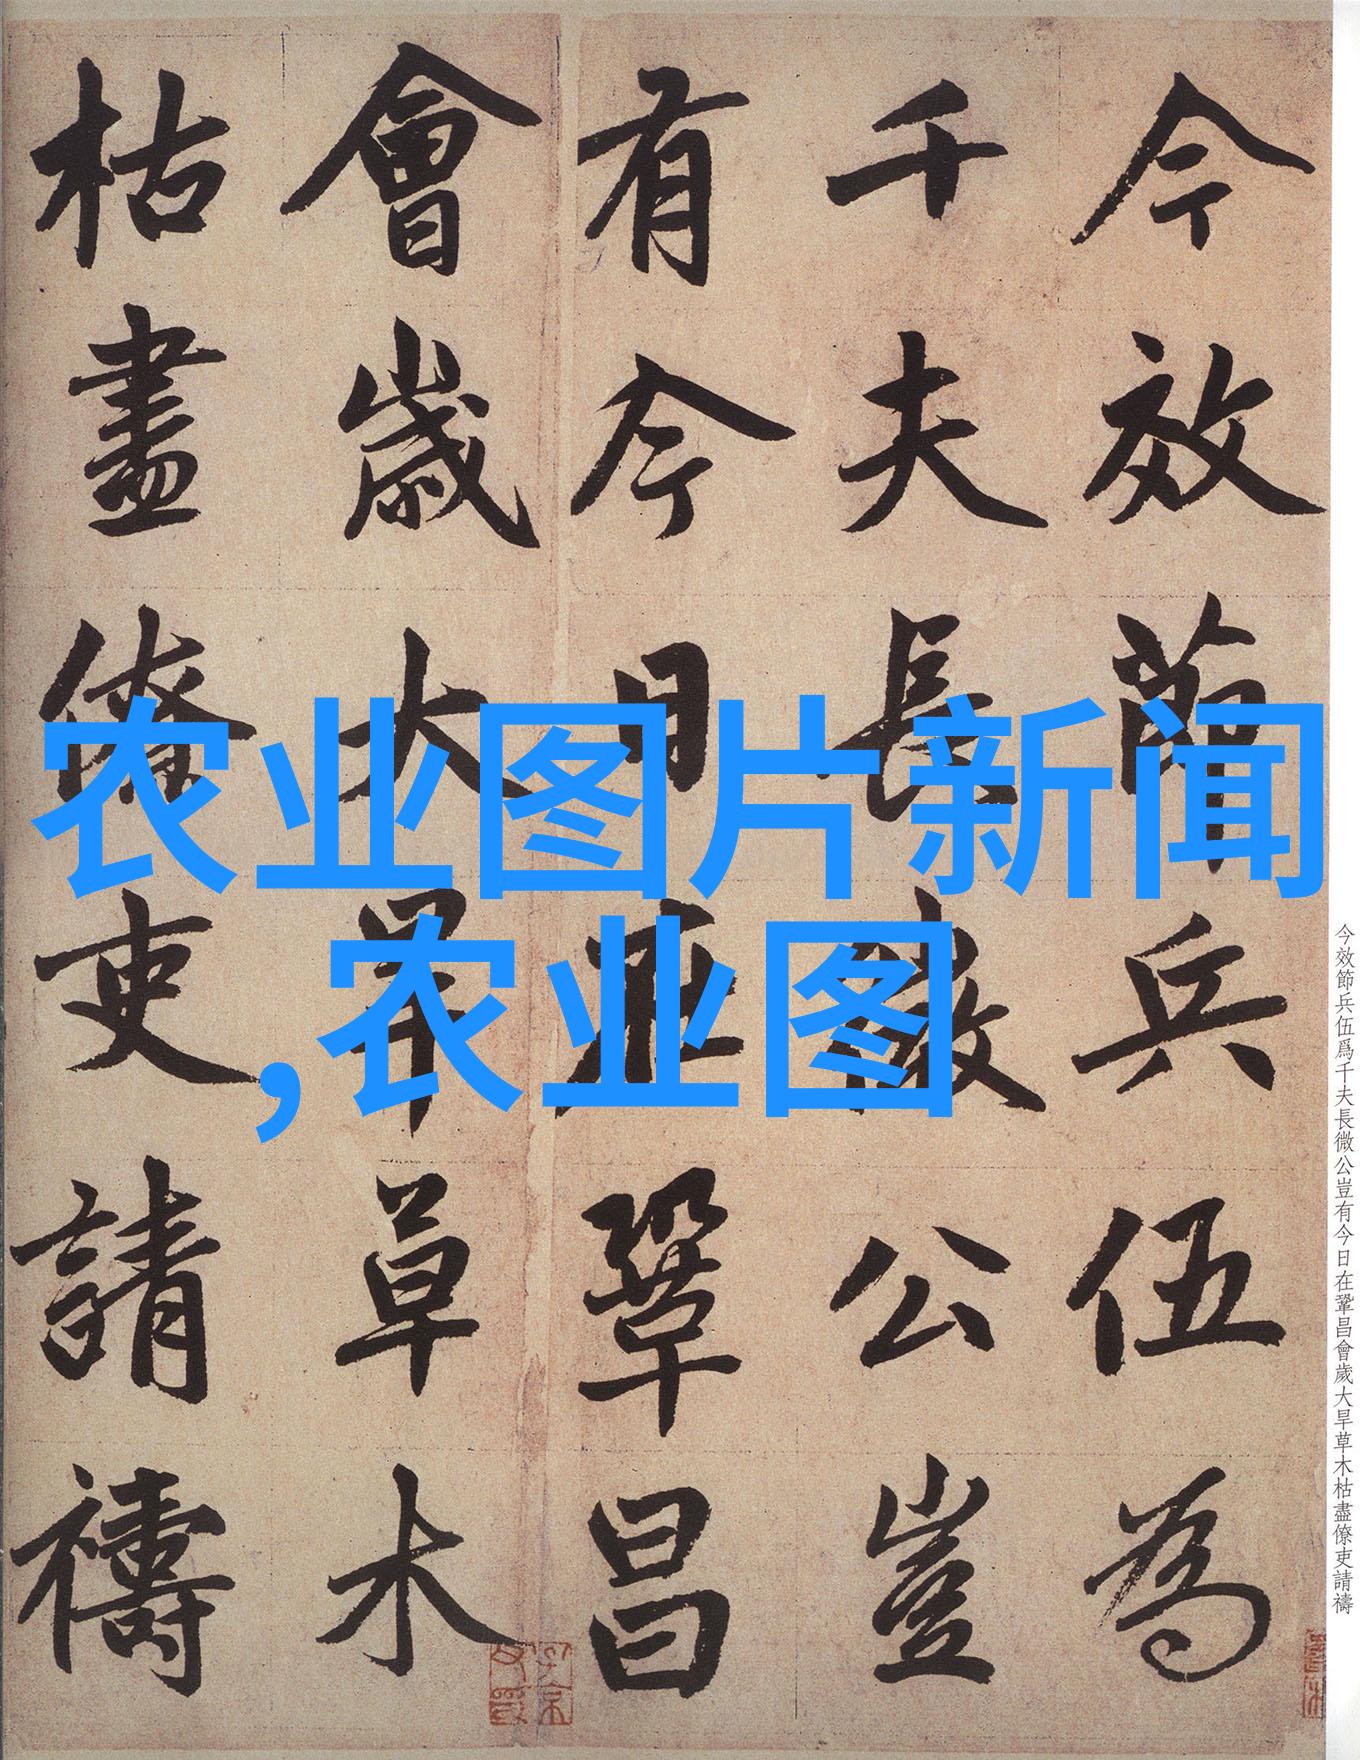 今效節兵伍為
千夫長微公豈
有今日在鞏昌
會歲大旱草木
枯盡僚吏請禱
农业图片新闻
,农业图
今效節兵伍爲千夫長微公豈有今日在鞏昌會歲大旱草木枯盡僚吏請禱